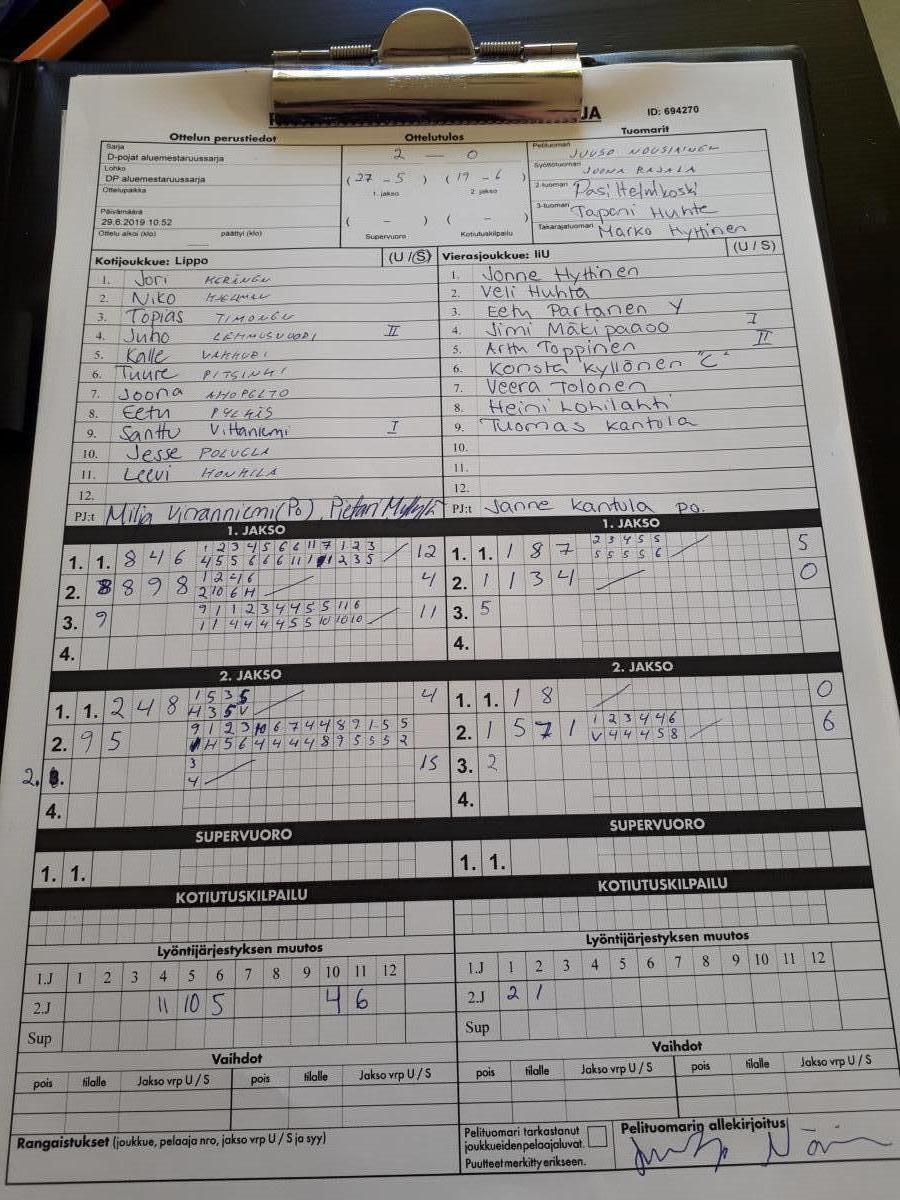 JA ID: 694270
Ottelun perustiedot
Sarja
D-pojat aluemestaruussarja
Lohko
DP aluemestaruussarja
Ottelupaikka
Päivämäärä
29.6.2019 10:52
Ottelu alkoi (klo) päättyi (klo)
Ottelutulos
2 — 0
(27 - 5) (19 - 6)
1. jakso 2. jakso
( - ) ( - )
Supervuoro Kotiutuskilpailu
Tuomarit
Pelituomari JUUSO NOUSIAINEN
Syöttötuomari JOONA RAJALA
2-tuomari Pasi Helmikoski
3-tuomari Tapani Huhta
Takarajatuomari Marko Hyttinen
Kotijoukkue: Lippo (U / S)
1. Jori KERÄNEN
2. Niko
3. Topias TIMONEN
4. Juho LEHMUSVUORI II
5. Kalle
6. Tuure
7. Joona AHOPELTO
8. Eetu
9. Santtu Viitaniemi I
10. Jesse
11. Leevi
12.
PJ:t Milja (Po), Pietari
Vierasjoukkue: IiU (U / S)
1. Jonne Hyttinen
2. Veli Huhta
3. Eetu Partanen Y
4. Jimi Mäkipaaso I
5. Arttu Toppinen II
6. Konsta Kyllönen "C"
7. Veera Tolonen
8. Heini Lohilahti
9. Tuomas Kantola
10.
11.
12.
PJ:t Janne Kantula po.
1. JAKSO
1. 1. 8 4 6 1 2 3 4 5 6 6 11 7 1 2 3 12
4 5 5 6 6 6 11 1 1 2 3 5
2. 8 8 9 8 1 2 4 6 4
2 10 6 11
3. 9 9 1 1 2 3 4 4 5 5 11 6 11
1 1 4 4 4 4 5 5 10 10 10
4.
1. JAKSO
1. 1. 1 8 7 2 3 4 5 5 5
5 5 5 5 6
2. 1 1 3 4 0
3. 5
4.
2. JAKSO
1. 1. 2 4 8 1 5 3 5 4
4 3 5 V
2. 9 5 9 1 2 3 10 6 7 4 4 8 9 1 5 5
4 5 6 4 4 4 4 8 9 5 5 5 2
2. 3. 3 15
4
4.
2. JAKSO
1. 1. 1 8 0
2. 1 5 7 1 1 2 3 4 4 6 6
V 4 4 4 5 8
3. 2
4.
SUPERVUORO
1. 1.
SUPERVUORO
1. 1.
KOTIUTUSKILPAILU
KOTIUTUSKILPAILU
Lyöntijärjestyksen muutos
1.J 1 2 3 4 5 6 7 8 9 10 11 12
2.J 11 10 5 4 6
Sup
Lyöntijärjestyksen muutos
1.J 1 2 3 4 5 6 7 8 9 10 11 12
2.J 2 1
Sup
Vaihdot
pois tilalle Jakso vrp U / S pois tilalle Jakso vrp U / S
Vaihdot
pois tilalle Jakso vrp U / S pois tilalle Jakso vrp U / S
Rangaistukset (joukkue, pelaaja nro, jakso vrp U / S ja syy)
Pelituomari tarkastanut
joukkueiden pelaajaluvat.
Puutteet merkitty erikseen.
Pelituomarin allekirjoitus